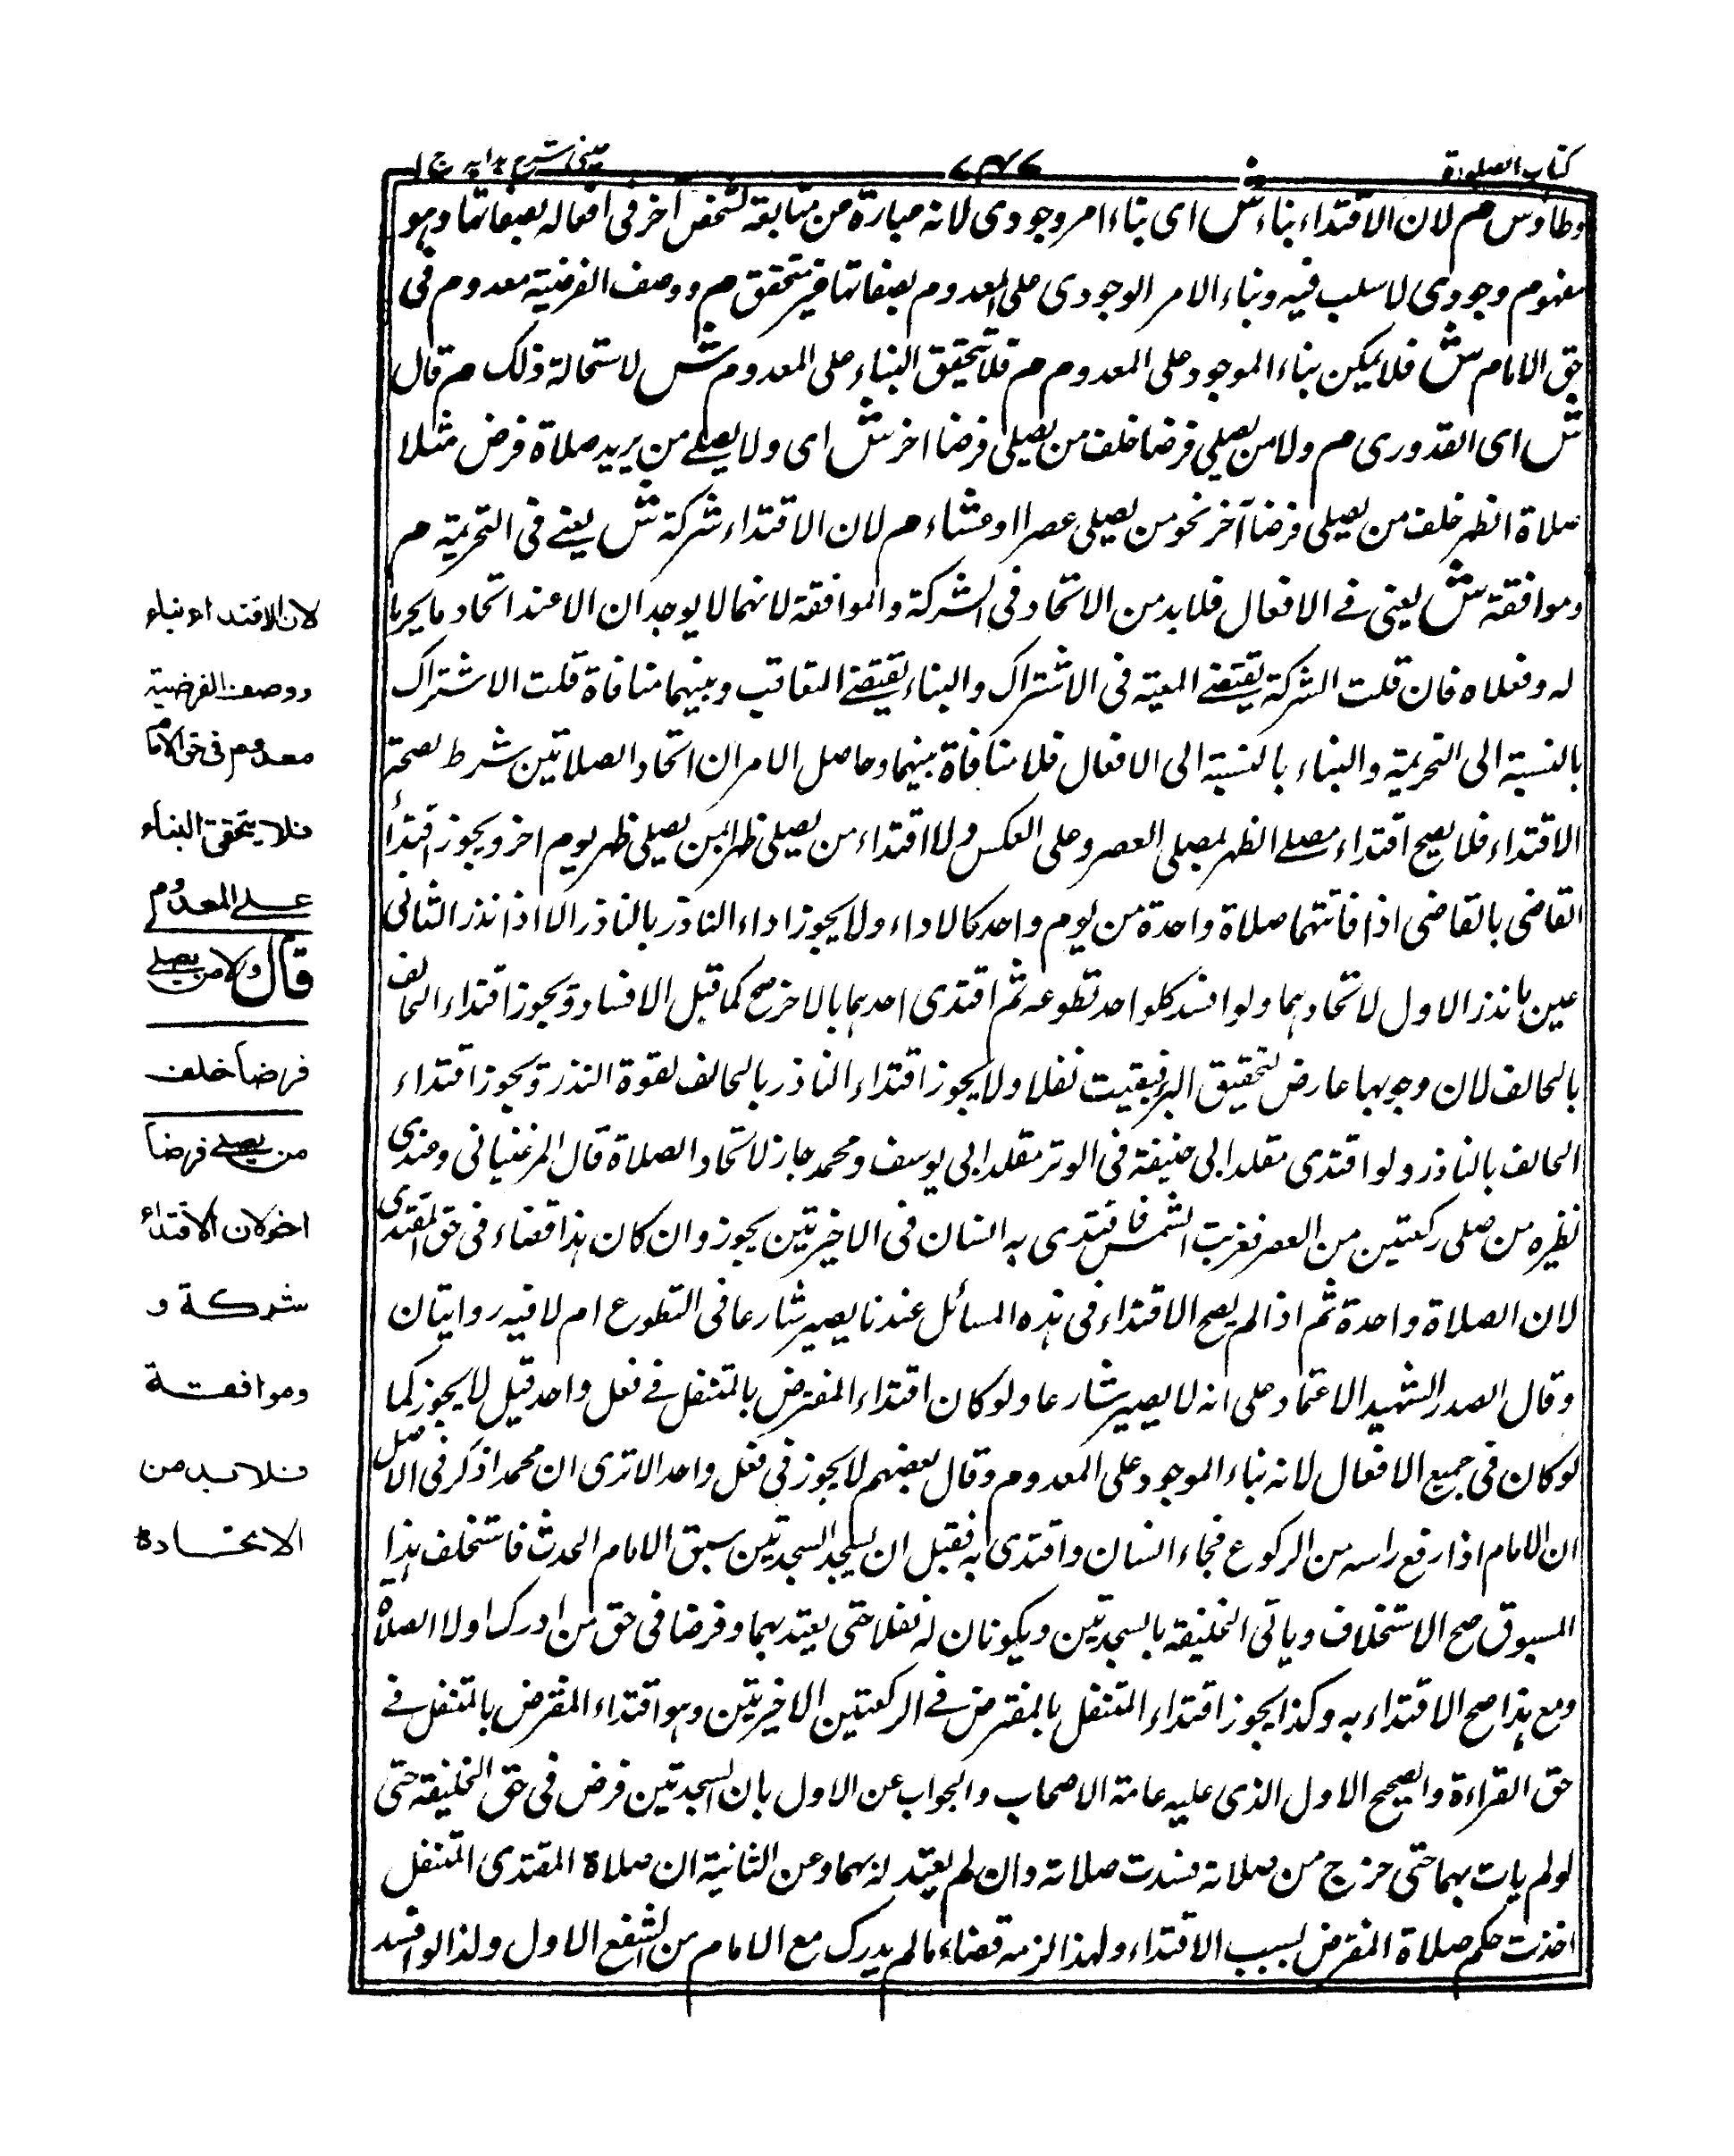 كتاب الصلوة
٧٤٧
عينى شرح هدايه ج ١
وطاوس م لان الاقتداء بناء ش اى بناء امر وجودى لانه عبارة من متابقه لشخص آخر فى افعاله بصفاتها وهو
مفهوم وجودى لا سلب فيه وبناء الامر الوجودى على المعدوم بصفاتها غير متحقق م ووصف الفرضية معدوم فى
حق الامام ش فلا يمكن بناء الموجود على المعدوم م فلا يتحقق البناء على المعدوم ش لاستحالة ذلك م قال
ش اى القدورى م ولا من يصلى فرضا خلف من يصلى فرضا اخر ش اى ولا يصلے من يريد صلاة فرض مثلا
صلاة الظهر خلف من يصلى فرضا آخر نحو من يصلى عصرا او عشاء م لان الاقتداء شركة ش يعنے فى التحريمة م
وموافقة ش يعنى فے الافعال فلا بد من الاتحاد فى الشركة والموافقة لانهما لا يوجدان الا عند اتحاد ما يحرما
له وفعلاه فان قلت الشركة يقتضے المعية فى الاشتراك والبناء يقتضے التعاقب وبينهما منافاة قلت الاشتراك
بالنسبة الى التحريمة والبناء بالنسبة الى الافعال فلا منافاة بينهما وحاصل الامر ان اتحاد الصلاتين شرط لصحة
الاقتداء فلا يصح اقتداء مصلے الظهر بمصلى العصر وعلى العكس ولا اقتداء من يصلى ظهرا بمن يصلى ظهر يوم اخر ويجوز اقتدأ
القاضى بالقاضى اذا فاتتهما صلاة واحدة من يوم واحد كالاداء ولا يجوز اداء الناذر بالناذر الا اذا نذر الثانى
عين ما نذر الاول لاتحادهما ولو افسد كلواحد تطوعه ثم اقتدى احدهما بالاخر صح كما قبل الافساد ويجوز اقتداء الحالف
بالحالف لان وجوبها عارض لتحقيق البر فبقيت نفلا ولا يجوز اقتداء الناذر بالحالف لقوة النذر ويجوز اقتداء
الحالف بالناذر ولو اقتدى مقلد ابى حنيفة فى الوتر مقلد ابى يوسف ومحمد جاز لاتحاد الصلاة قال المرغينانى وعندى
نظيره من صلى ركعتين من العصر فغربت الشمس فاقتدى به انسان فى الاخيرتين يجوز وان كان هذا قضاء فى حق المقتدى
لان الصلاة واحدة ثم اذا لم يصح الاقتداء فى هذه المسائل عندنا يصير شارعا فى التطوع ام لا فيه روايتان
وقال الصدر الشهيد الاعتماد على انه لا يصير شارعا ولو كان اقتداء المفترض بالمتنفل فے فعل واحد قيل لا يجوز كما
لو كان فى جميع الافعال لانه بناء الموجود على المعدوم وقال بعضهم لا يجوز فى فعل واحد الا ترى ان محمدا ذكر فى الاصل
ان الامام اذا رفع راسه من الركوع فجاء انسان واقتدى به فقبل ان يسجد السجدتين سبق الامام الحدث فاستخلف هذا
المسبوق صح الاستخلاف وياتى الخليفة بالسجدتين ويكونان له نفلا حتى يعتد بهما وفرضا فى حق من ادرك اولا الصلاة
ومع هذا صح الاقتداء به وكذا يجوز اقتداء المتنفل بالمفترض فے الركعتين الاخيرتين وهو اقتداء المفترض بالمتنفل فے
حق القراءة والصحيح الاول الذى عليه عامة الاصحاب والجواب عن الاول بان السجدتين فرض فى حق الخليفة حتى
لو لم يات بهما حتى خرج من صلاته فسدت صلاته وان لم يعتد له بهما وعن الثانية ان صلاة المقتدى المتنفل
اخذت حكم صلاة المفترض بسبب الاقتداء ولهذا لزمه قضاء ما لم يدرك مع الامام من الشفع الاول ولذا لو افسد
لان الاقتداء بناء
ووصف الفرضية
معدوم فى حق الامام
فلا يتحقق البناء
علے المعدوم
قال ولا من يصلے
فرضا خلف
من يصلے فرضا
اخر لان الاقتداء
شركة و
وموافقة
فلا بد من
الاتحاد ه